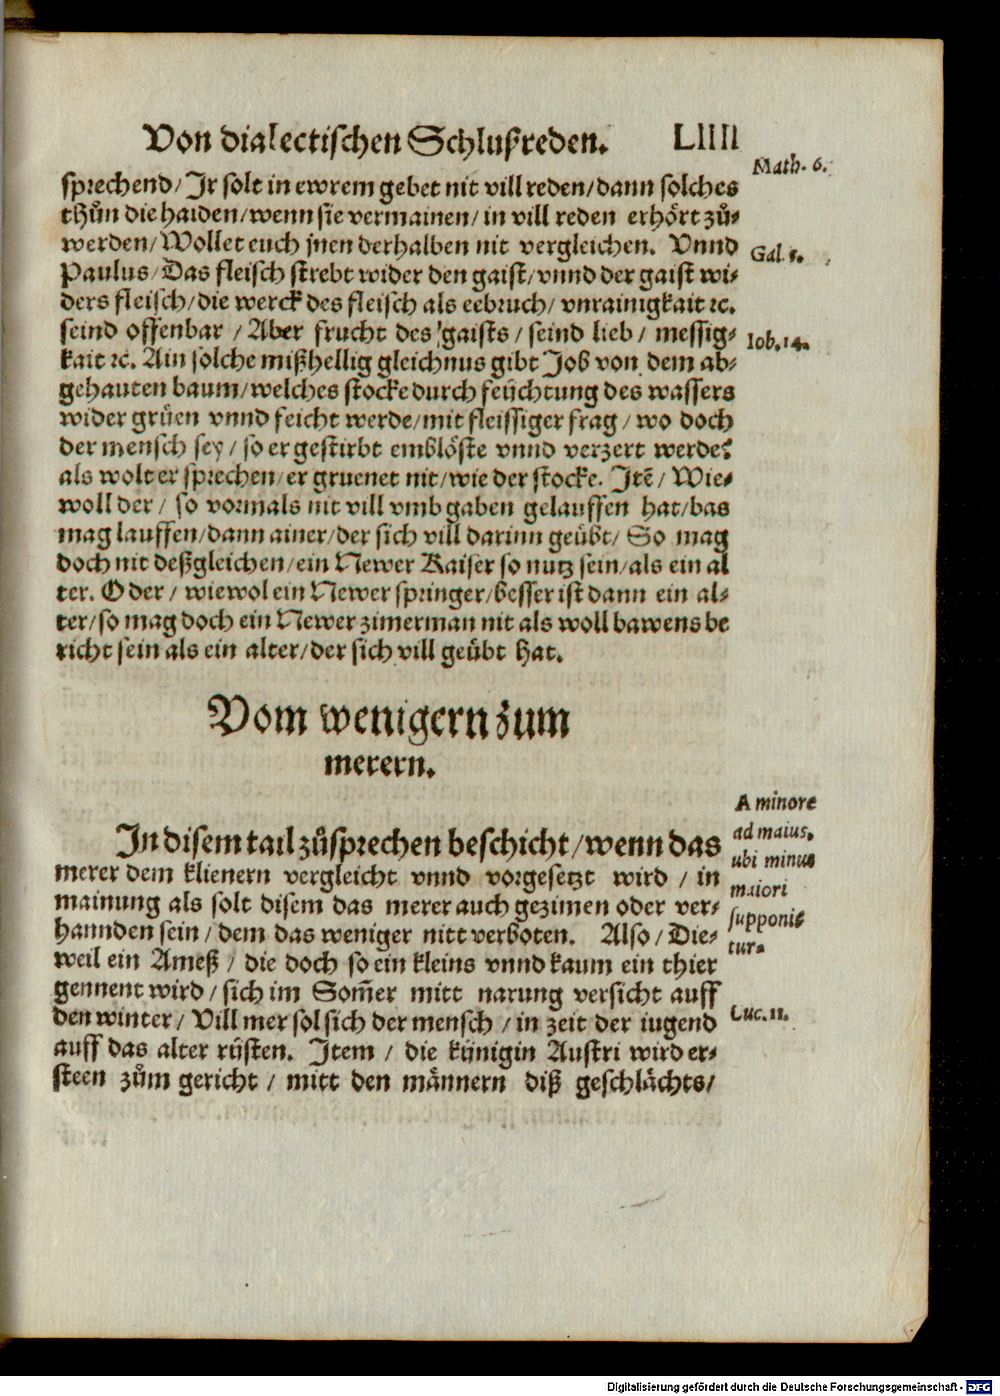 Von dialectischen Schlußreden. LIIII
sprechend/ Jr solt in ewrem gebet nit vill reden/ dann solches
thůn die haiden/ wenn sie vermainen/ in vill reden erhört zů-
werden/ Wollet euch jnen derhalben nit vergleichen. Vnnd
Paulus/ Das fleisch strebt wider den gaist/ vnnd der gaist wi-
ders fleisch/ die werck des fleisch als eebruch/ vnrainigkait ꝛc.
seind offenbar / Aber frucht des gaists / seind lieb / messig-
kait ꝛc. Ain solche mißhellig gleichnus gibt Job von dem ab-
gehauten baum/ welches stocke durch feüchtung des wassers
wider grüen vnnd feicht werde/ mit fleissiger frag / wo doch
der mensch sey / so er gestirbt emblöste vnnd verzert werde?
als wolt er sprechen/ er gruenet nit/ wie der stocke. Itē / Wie-
woll der / so vormals nit vill vmb gaben gelauffen hat/ bas
mag lauffen/ dann ainer/ der sich vill darinn geübt/ So mag
doch nit deßgleichen/ ein Newer Kaiser so nutz sein/ als ein al
ter. Oder / wiewol ein Newer springer/ besser ist dann ein al-
ter/ so mag doch ein Newer zimerman nit als woll bawens be
richt sein als ein alter/ der sich vill geübt hat.
Vom wenigern zum
merern.
In disem tail zůsprechen beschicht/ wenn das
merer dem klienern vergleicht vnnd vorgesetzt wird / in
mainung als solt disem das merer auch gezimen oder ver-
hannden sein / dem das weniger nitt verboten. Also / Die-
weil ein Ameß / die doch so ein kleins vnnd kaum ein thier
gennent wird / sich im Som̄er mitt narung versicht auff
den winter / Vill mer sol sich der mensch / in zeit der iugend
auff das alter rüsten. Item / die künigin Austri wird er-
steen zům gericht / mitt den männern diß geschlächts/
Math. 6.
Gal. 5.
Iob. 14.
A minore
ad maius,
ubi minus
maiori
supponit
tur.
Luc. 11.
Digitalisierung gefördert durch die Deutsche Forschungsgemeinschaft - DFG